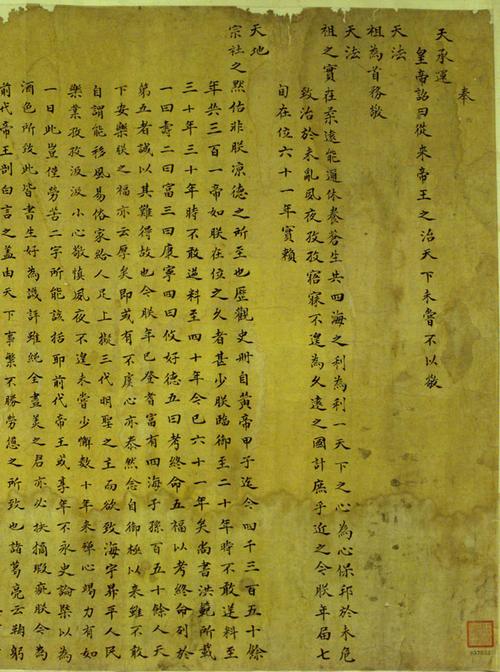 奉
天承運
皇帝詔曰從來帝王之治天下未嘗不以敬
天法
祖為首務敬
天法
祖之實在柔遠能邇休養蒼生共四海之利為利一天下之心為心保邦於未危
致治於未亂夙夜孜孜寤寐不遑為久遠之國計庶乎近之今朕年屆七
旬在位六十一年實賴
天地
宗社之默佑非朕涼德之所至也歷觀史冊自黃帝甲子迄今四千三百五十餘
年共三百一帝如朕在位之久者甚少朕臨御至二十年時不敢逆料至
三十年三十年時不敢逆料至四十年今已六十一年矣尚書洪範所載
一曰壽二曰富三曰康寧四曰攸好德五曰考終命五福以考終命列於
第五者誠以其難得故也今朕年已登耆富有四海子孫百五十餘人天
下安樂朕之福亦云厚矣即或有不虞心亦泰然念自御極以來雖不敢
自謂能移風易俗家給人足上擬三代明聖之主而欲致海宇昇平人民
樂業孜孜汲汲小心敬慎夙夜不遑未嘗少懈數十年來殫心竭力有如
一日此豈僅勞苦二字所能該括耶前代帝王或享年不永史論槩以為
酒色所致此皆書生好為譏評雖純全盡美之君亦必抉摘瑕疵朕今為
前代帝王剖白言之蓋由天下事繁不勝勞憊之所致也諸葛亮云鞠躬